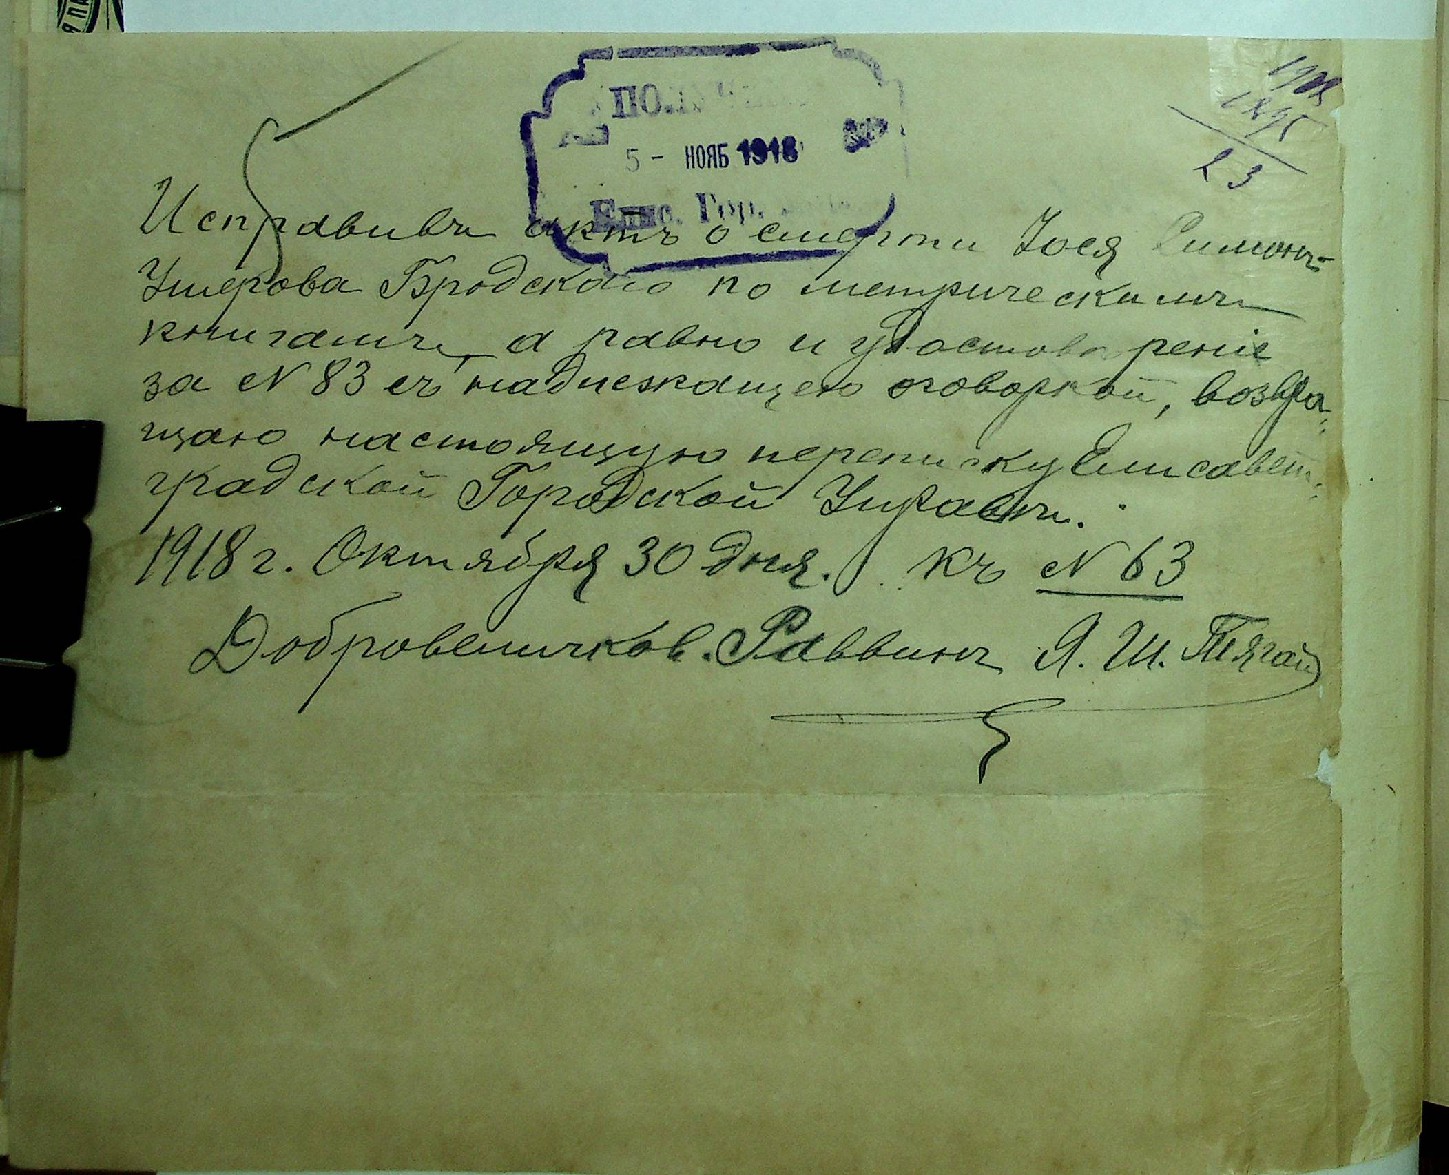 5 - НОЯБ 1918
Елис. Гор.
23
Исправивъ актъ о смерти Іося Симонъ-
Умерова Бродскаго по метрическимъ
книгамъ, а равно и удостоверенiе
за № 83 съ надлежащею оговоркой, возвра-
щаю настоящую переписку Елисавет-
градской Городской Управѣ.
1918 г. Октября 30 дня. къ № 63
Добровеличков. Раввинъ Я. Ш. Тягай